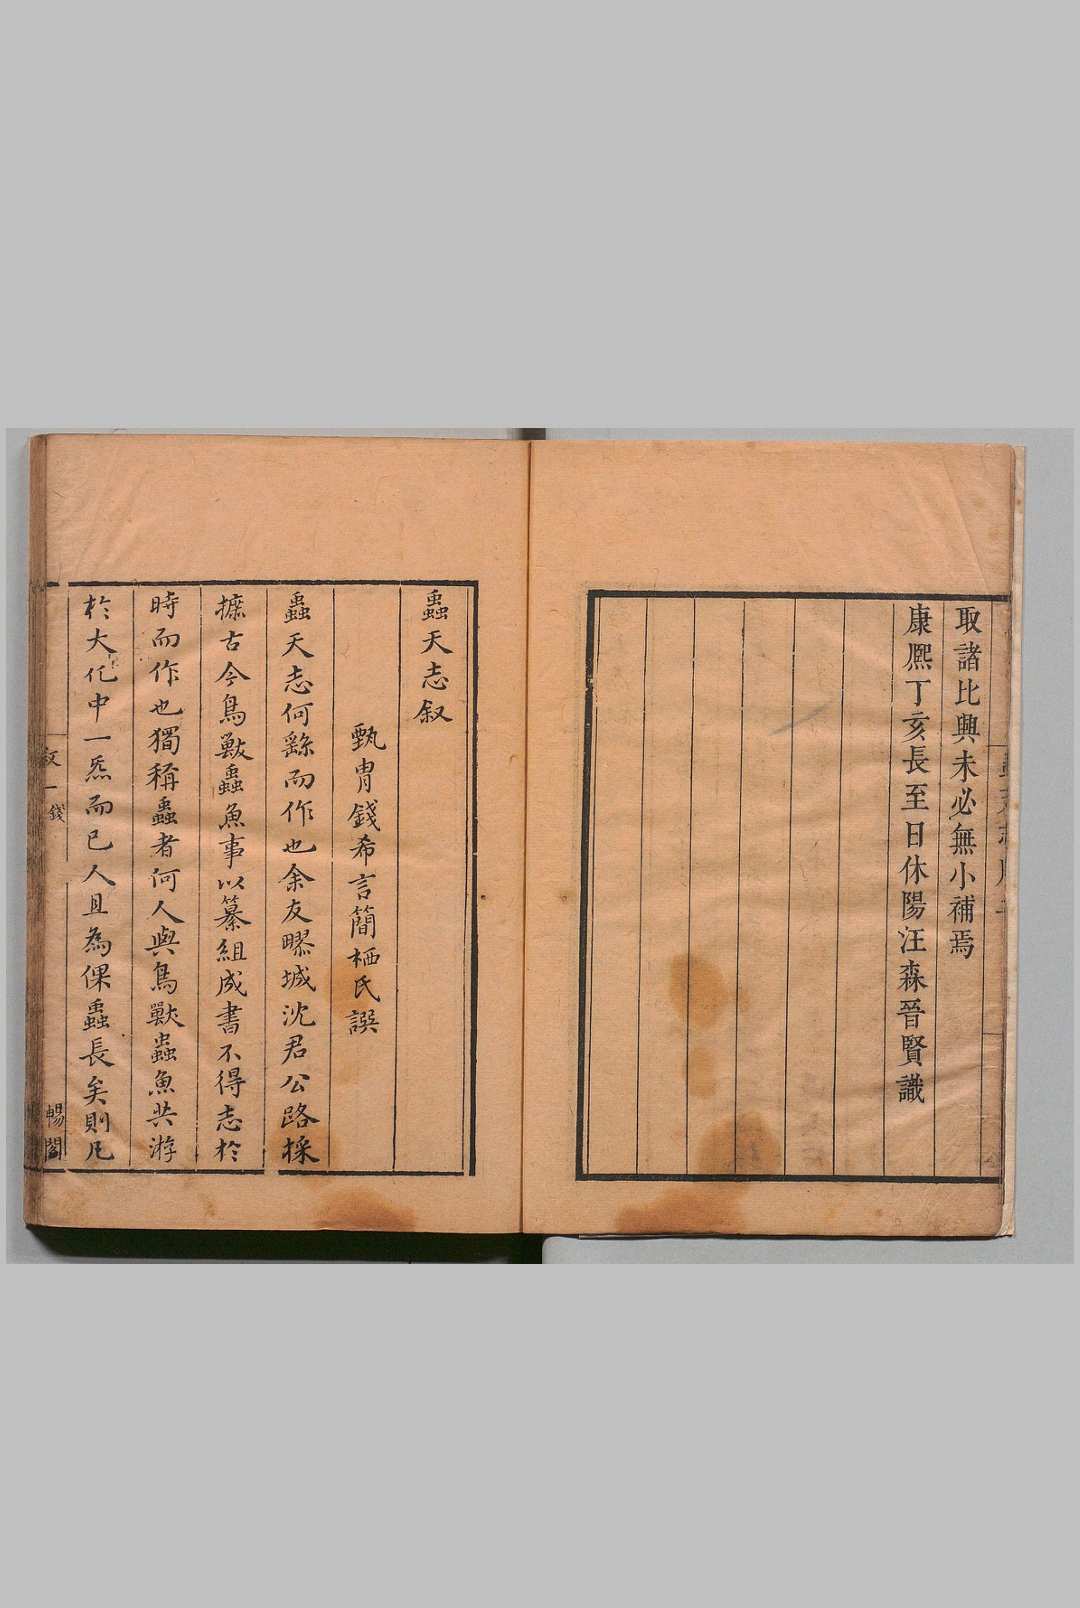 取諸比興未必無小補焉
康熈丁亥長至日休陽汪森晉賢識
蟲天志叙
甄胄錢希言簡栖氏譔
蟲天志何繇而作也余友疁城沈君公路採
摭古今鳥獸蟲魚事以纂組成書不得志於
時而作也獨稱蟲者何人與鳥獸蟲魚共游
於大化中一炁而已人且為倮蟲長矣則凡
叙
一
錢
暢閣